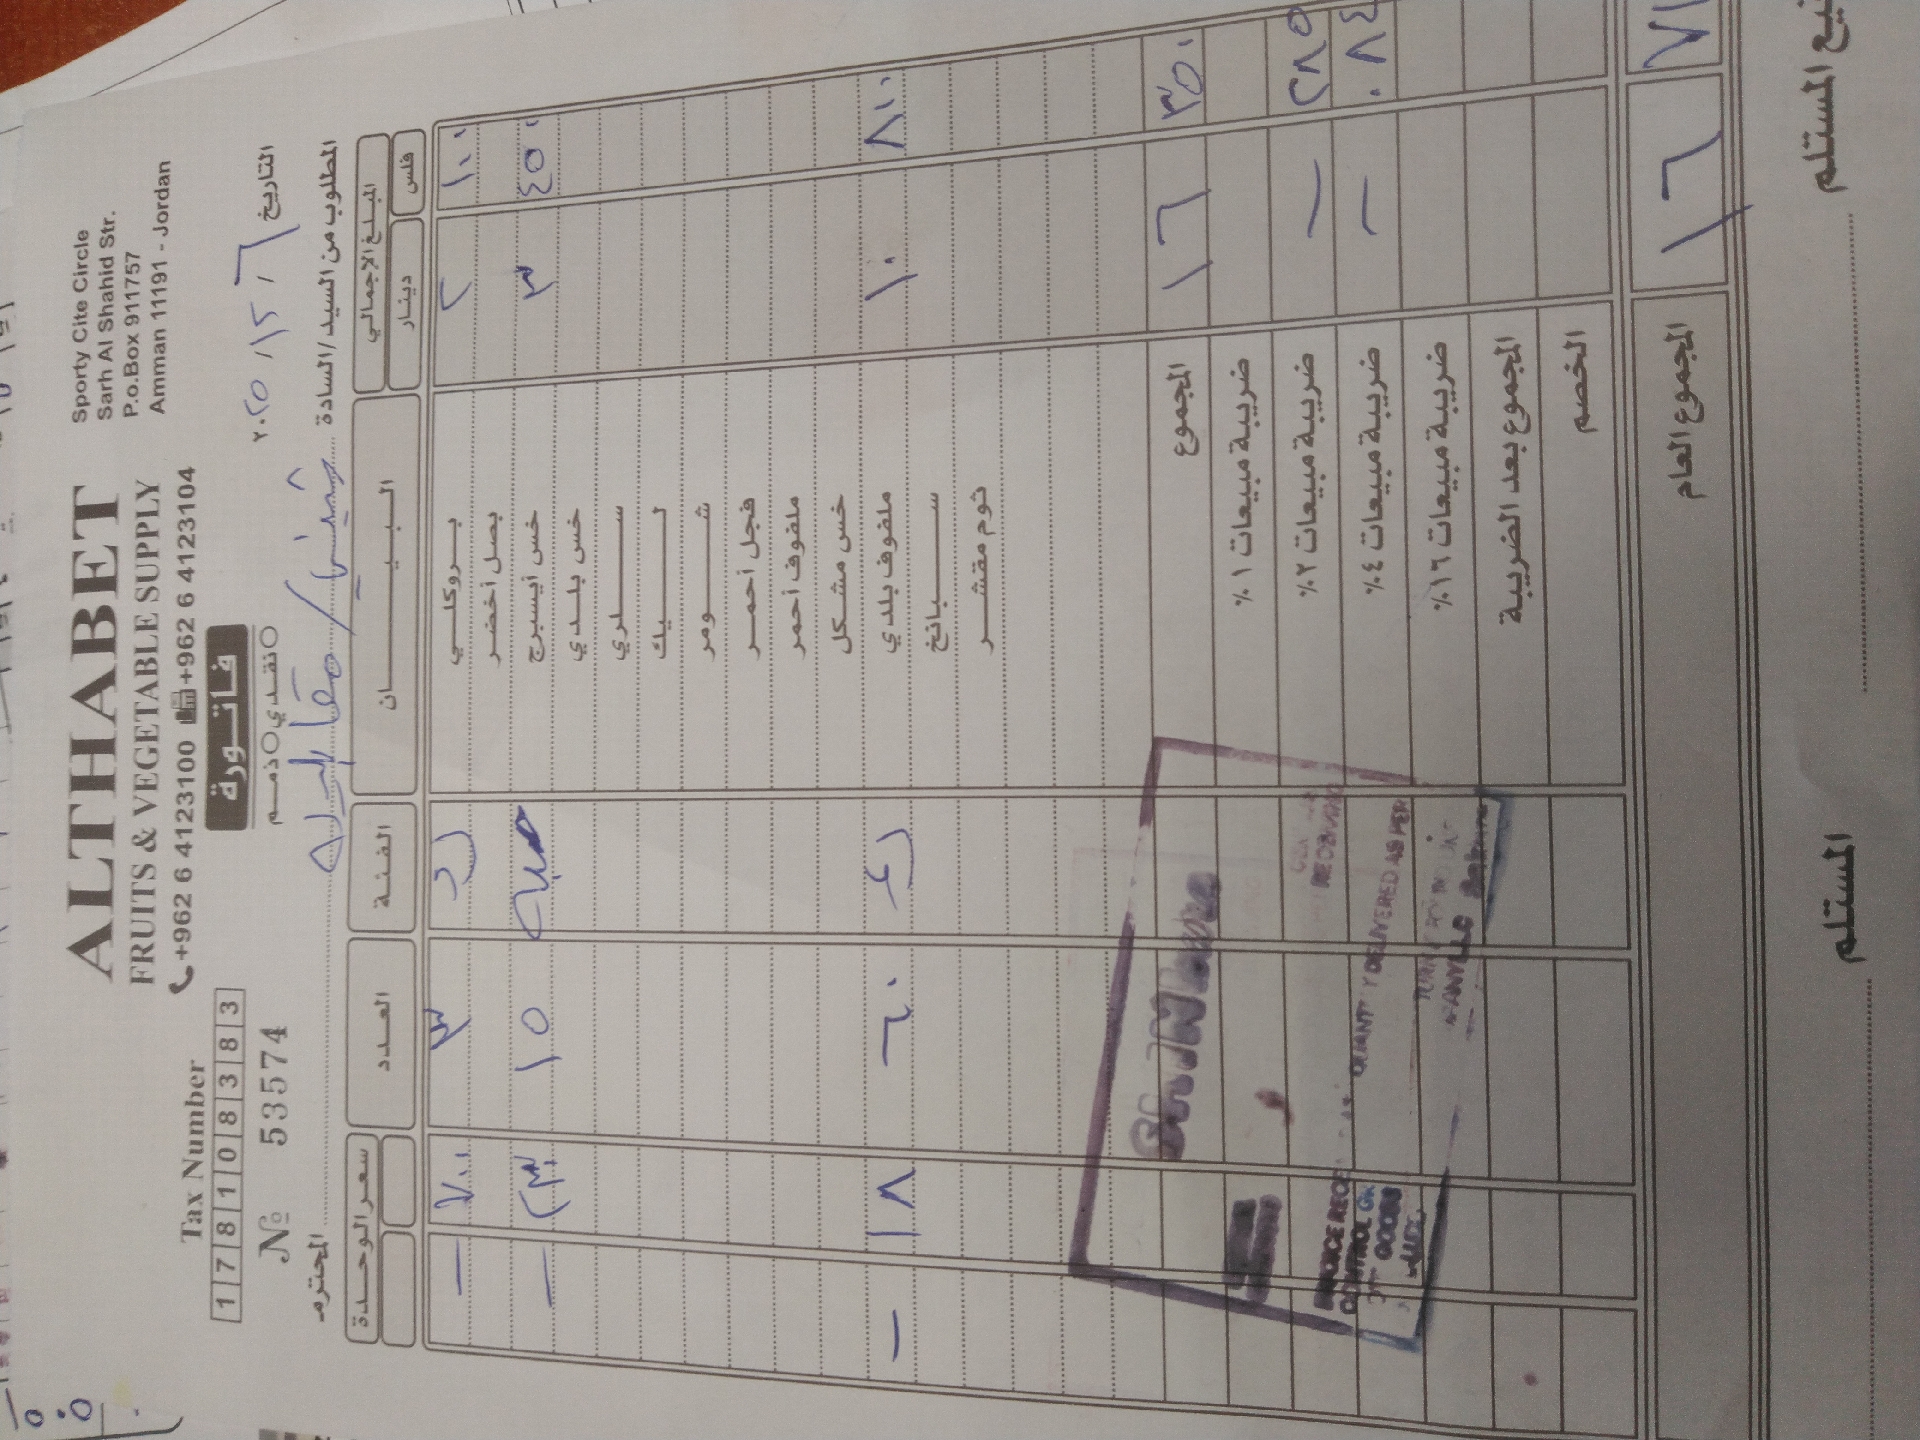 ALTHABET
FRUITS & VEGETABLE SUPPLY
+962 6 4123100 +962 6 4123104
Sporty Cite Circle
Sarh Al Shahid Str.
P.o.Box 911757
Amman 11191 - Jordan
Tax Number
1 7 8 1 0 8 3 8 3
№ 53574
فاتورة
نقدي ذمم
التاريخ ٦ / ١٢ / ٢٠٢٥
المطلوب من السيد/السادة المحترم
المبلغ الإجمالي البيان الفئة العدد سعر الوحدة
فلس دينار
١٠٠ ٢ بروكلي ٣ ٧٠٠ —
بصل أخضر
٤٥٠ ٣ خس أيسبرج حبة ١٥ ٢٣٠ —
خس بلدي
سلري
ليك
شومر
فجل أحمر
ملفوف أحمر
خس مشكل
٨١٠ ١٠ ملفوف بلدي ٦٠ ١٨ —
سبانخ
ثوم مقشر
المجموع ١٦ ٣٥٠
ضريبة مبيعات ١٪
ضريبة مبيعات ٢٪ — ٢٨٥
ضريبة مبيعات ٤٪ — ٠٨٤
ضريبة مبيعات ١٦٪
المجموع بعد الضريبة
الخصم
المجموع العام ١٦
QUANTITY DELIVERED AS PER
المستلم
المستلم